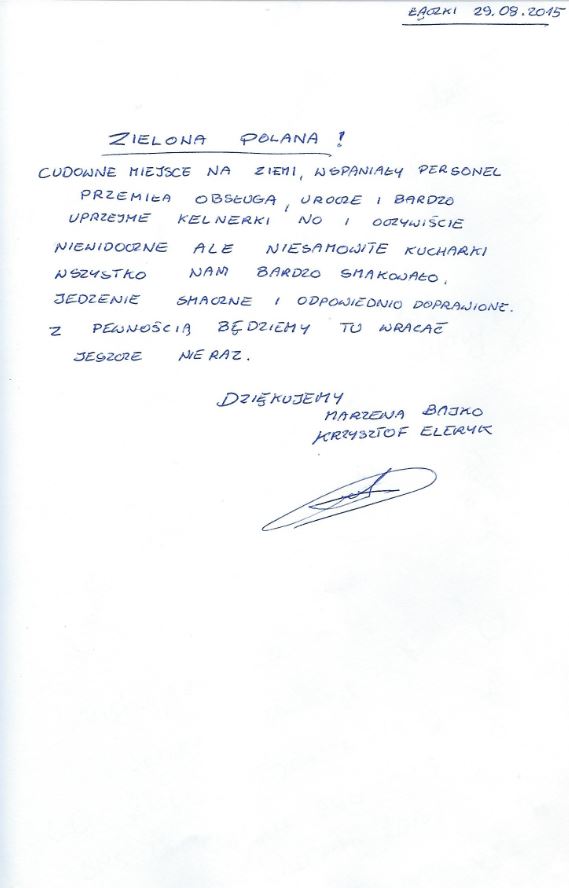 ŁĄCZKI 29.08.2015
ZIELONA POLANA!
CUDOWNE MIEJSCE NA ZIEMI, WSPANIAŁY PERSONEL
PRZEMIŁA OBSŁUGA, UROCZE I BARDZO
UPRZEJME KELNERKI NO I OCZYWIŚCIE
NIEWIDOCZNE ALE NIESAMOWITE KUCHARKI
WSZYSTKO NAM BARDZO SMAKOWAŁO,
JEDZENIE SMACZNE I ODPOWIEDNIO DOPRAWIONE.
Z PEWNOŚCIĄ BĘDZIEMY TU WRACAĆ
JESZCZE NIE RAZ.
DZIĘKUJEMY
MARZENA BAJKO
KRZYSZTOF ELERYK